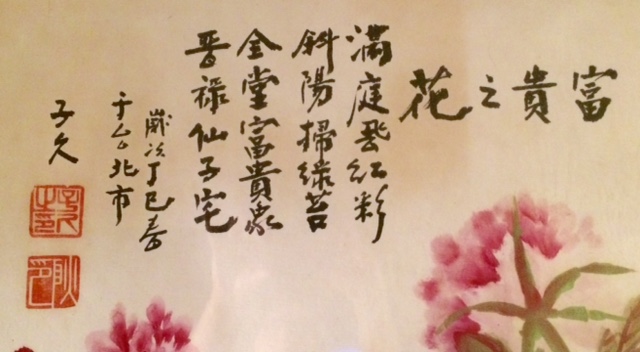 富貴之花
滿庭飛紅彩
斜陽掃綠苔
全堂富貴象
晋祿仙子宅
歲次丁巳春
于台北市
子久